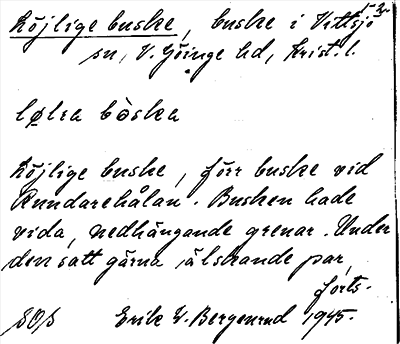 Löjlige buske, buske i Vittsjö
sn, V. Göinge hd, Krist. l.
lølia bòska
Löjlige buske, förr buske vid
Rundarehålan. Busken hade
vida, nedhängande grenar. Under
den satt gärna älskande par,
forts.
SOS Erik W. Bergenrud 1945.